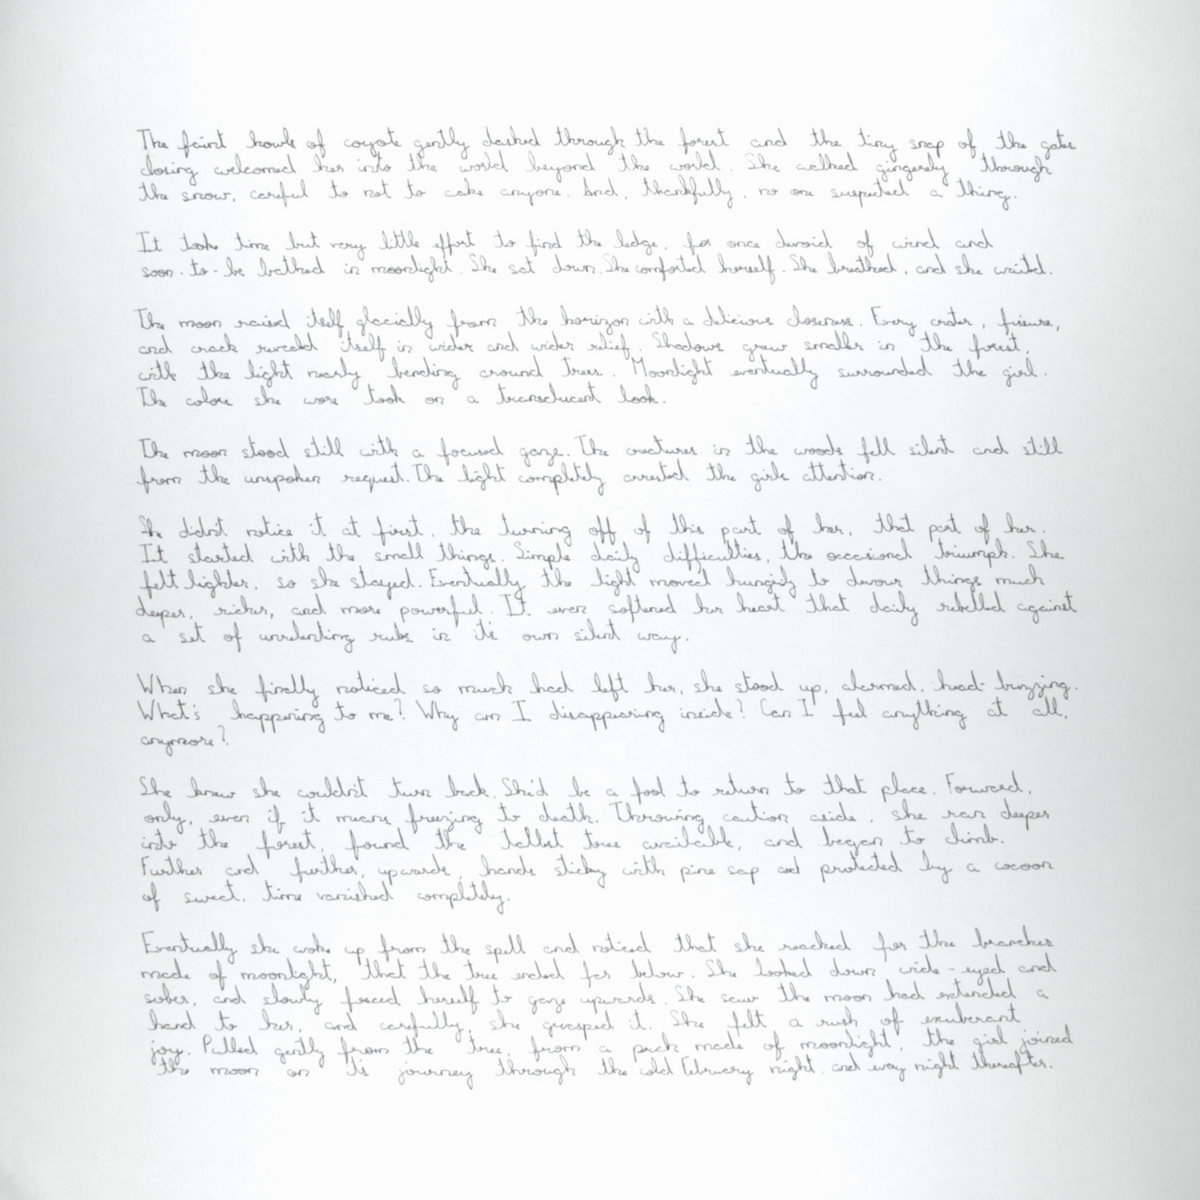 The faint howls of coyote gently dashed through the forest and the tiny snap of the gates
closing welcomed her into the world beyond the world. She walked gingerely through
the snow, careful to not to wake anyone. And, thankfully, no one suspected a thing.
It took time but very little effort to find the ledge, for once devoid of wind and
soon-to-be bathed in moonlight. She sat down. She comforted herself. She breathed, and she waited.
The moon raised itself glacially from the horizon with a delicious closeness. Every crater, fissure,
and crack revealed itself in wider and wider relief. Shadows grew smaller in the forest,
with the light nearly bending around trees. Moonlight eventually surrounded the girl.
The colors she wore took on a translucent look.
The moon stood still with a focused gaze. The creatures in the woods fell silent and still
from the unspoken request. The light completely arrested the girls attention.
She didn't notice it at first, the turning off of this part of her, that part of her.
It started with the small things. Simple daily difficulties, the occasional triumph. She
felt lighter, so she stayed. Eventually the light moved hungrily to devour things much
deeper, richer, and more powerful. It even softened her heart that daily rebelled against
a set of unrelenting rules in it's own silent way.
When she finally noticed so much had left her, she stood up, alarmed, head-buzzing.
What's happening to me? Why am I disappearing inside? Can I feel anything at all,
anymore?
She knew she couldn't turn back. She'd be a fool to return to that place. Forward,
only, even if it means freezing to death. Throwing caution aside, she ran deeper
into the forest, found the tallest tree available, and began to climb.
Further and further, upwards, hands sticky with pine sap and protected by a cocoon
of sweat, time vanished completely.
Eventually she woke up from the spell and noticed that she reached for the branches
made of moonlight, that the tree ended far below. She looked down wide-eyed and
sober, and slowly forced herself to gaze upwards. She saw the moon had extended a
hand to her, and carefully, she grasped it. She felt a rush of exuberant
joy. Pulled gently from the tree, from a perch made of moonlight, the girl joined
the moon on its journey through the cold February night, and every night thereafter.